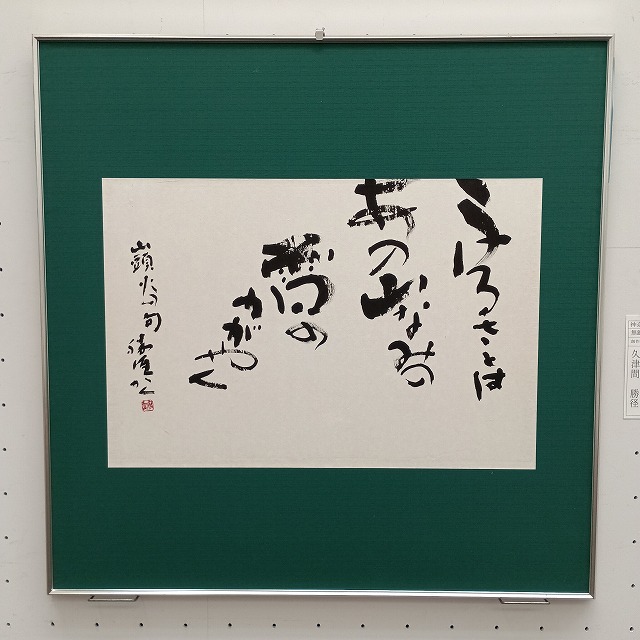 ふるさとは
あの山なみの
雪の
かがやく
山頭火の句 勝径かく
久津間 勝径